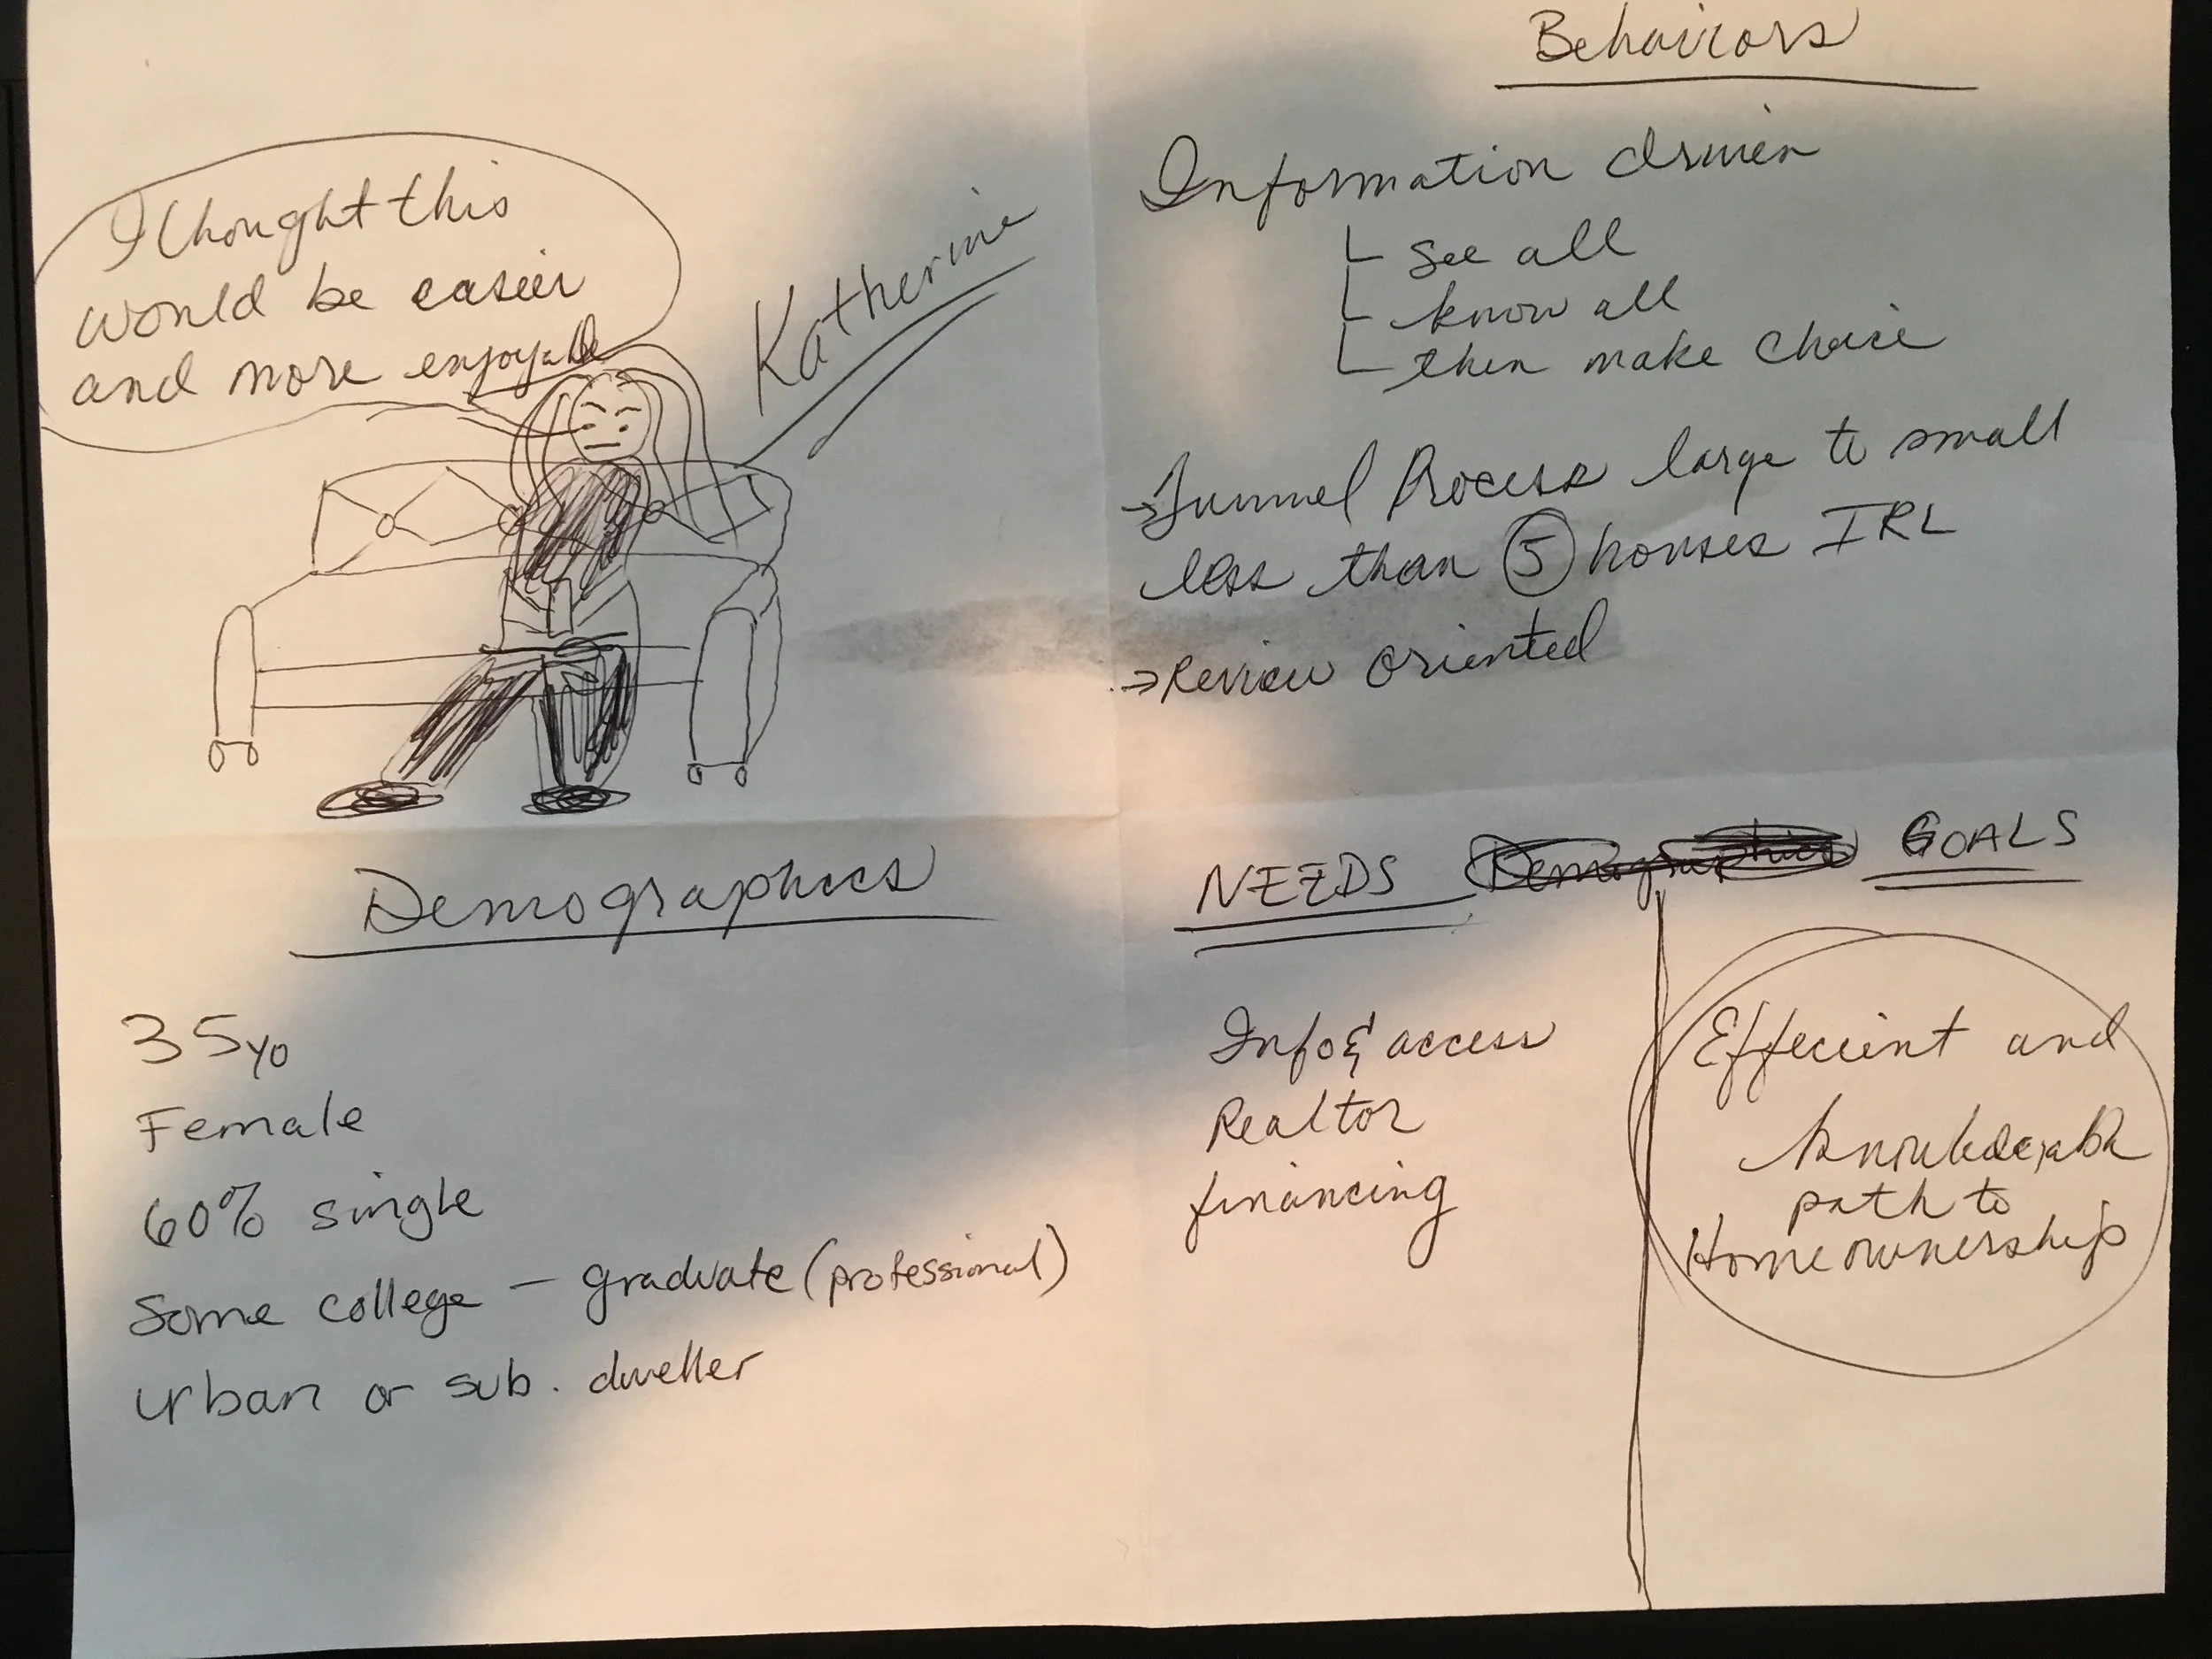 I thought this
would be easier
and more enjoyable
Katherine
Behaviors
Information driven
see all
know all
then make choice
→ Funnel Process large to small
less than 5 houses IRL
→ Review oriented
Demographics
35yo
Female
60% single
Some college – graduate (professional)
Urban or sub. dweller
NEEDS Demographics GOALS
Info & access
Realtor
financing
Effecient and
knowledgeable
path to
Homeownership